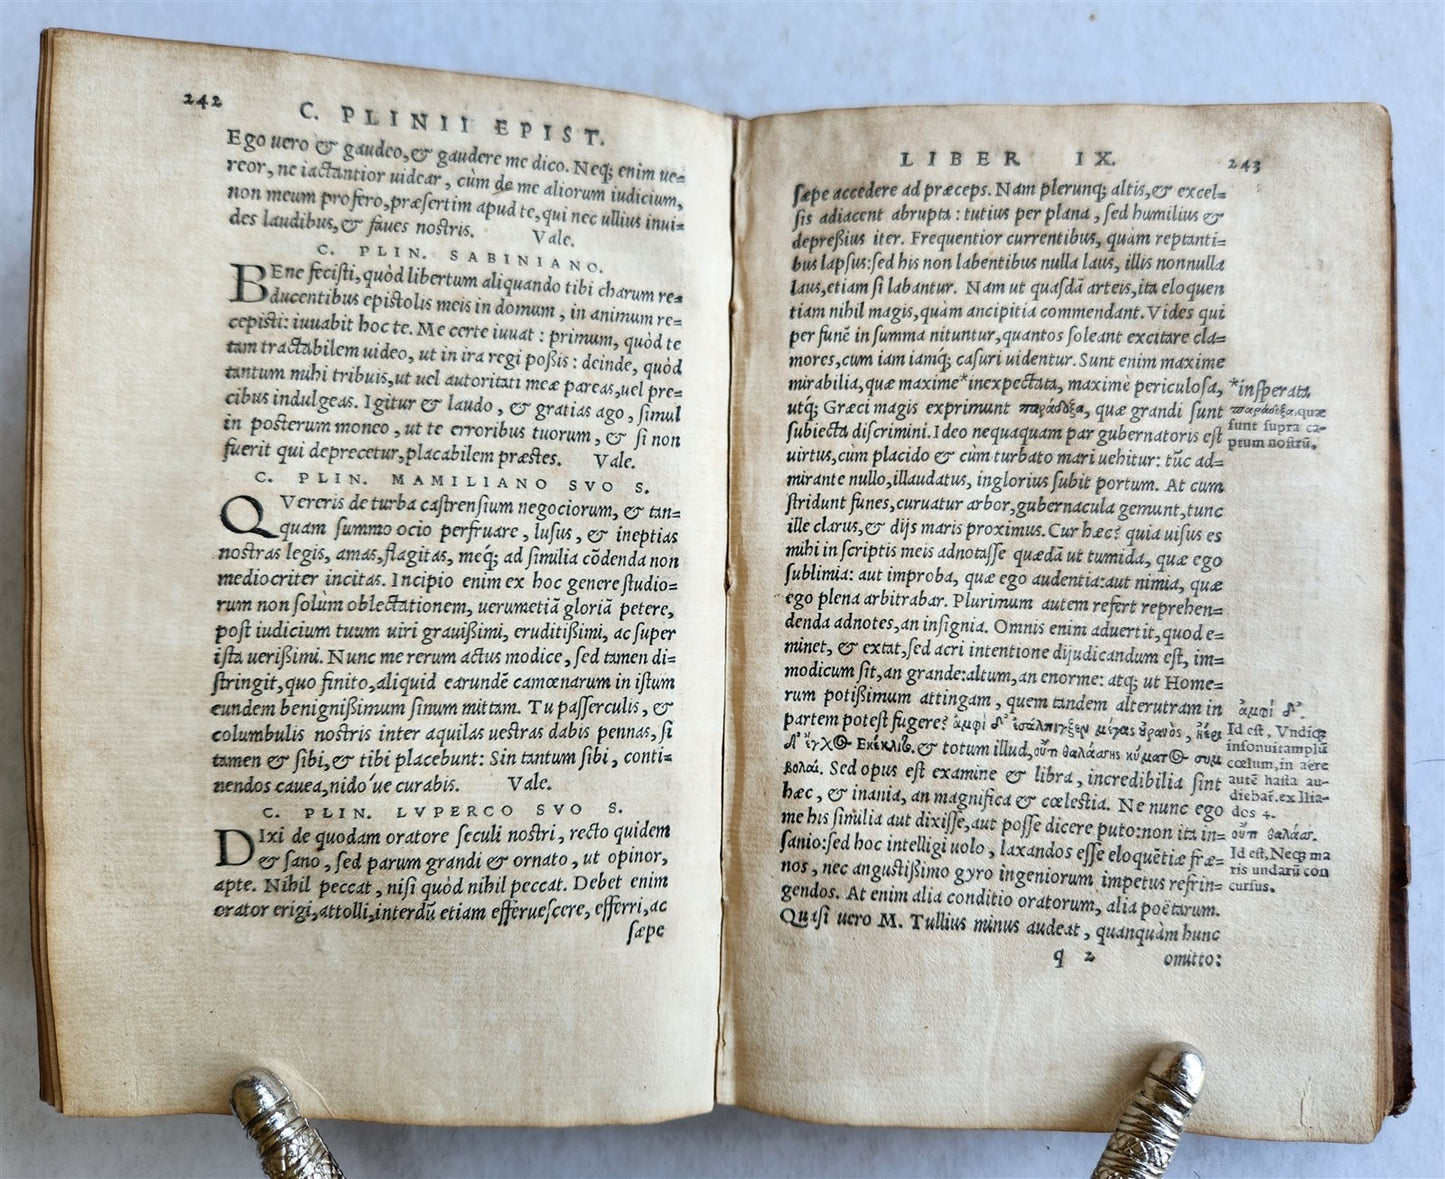 242
C. PLINII EPIST.
Ego uero & gaudeo, & gaudere me dico. Neq; enim ue=
reor, ne iactantior uidear, cùm de me aliorum iudicium,
non meum profero, præsertim apud te, qui nec ullius inui=
des laudibus, & faues nostris. Vale.
C. PLIN. SABINIANO.
BEne fecisti, quòd libertum aliquando tibi charum re=
ducentibus epistolis meis in domum, in animum re=
cepisti: iuuabit hoc te. Me certe iuuat: primum, quòd te
tam tractabilem uideo, ut in ira regi poßis: deinde, quòd
tantum mihi tribuis, ut uel autoritati meæ pareas, uel pre=
cibus indulgeas. Igitur & laudo, & gratias ago, simul
in posterum moneo, ut te erroribus tuorum, & si non
fuerit qui deprecetur, placabilem præstes. Vale.
C. PLIN. MAMILIANO SVO S.
QVereris de turba castrensium negociorum, & tan=
quam summo ocio perfruare, lusus, & ineptias
nostras legis, amas, flagitas, meq́; ad similia cõdenda non
mediocriter incitas. Incipio enim ex hoc genere studio=
rum non solùm oblectationem, uerumetiã gloriã petere,
post iudicium tuum uiri grauißimi, eruditißimi, ac super
ista uerißimi. Nunc me rerum actus modice, sed tamen di=
stringit, quo finito, aliquid earundẽ camœnarum in istum
eundem benignißimum sinum mittam. Tu passerculis, &
columbulis nostris inter aquilas uestras dabis pennas, si
tamen & sibi, & tibi placebunt: Sin tantum sibi, conti=
nendos cauea, nido ́ue curabis. Vale.
C. PLIN. LVPERCO SVO S.
DIxi de quodam oratore seculi nostri, recto quidem
& sano, sed parum grandi & ornato, ut opinor,
apte. Nihil peccat, nisi quòd nihil peccat. Debet enim
orator erigi, attolli, interdũ etiam efferuescere, efferri, ac
sæpe
LIBER IX. 243
sæpe accedere ad præceps. Nam plerunq; altis, & excel=
sis adiacent abrupta: tutius per plana, sed humilius &
depreßius iter. Frequentior currentibus, quàm reptanti=
bus lapsus: sed his non labentibus nulla laus, illis nonnulla
laus, etiam si labantur. Nam ut quasdã arteis, ita eloquen
tiam nihil magis, quàm ancipitia commendant. Vides qui
per funẽ in summa nituntur, quantos soleant excitare cla=
mores, cum iam iamq; casuri uidentur. Sunt enim maxime
mirabilia, quæ maxime *inexpectata, maximè periculosa,
utq́; Græci magis exprimunt παράδοξα, quæ grandi sunt
subiecta discrimini. Ideo nequaquam par gubernatoris est
uirtus, cùm placido & cùm turbato mari uehitur: tũc ad=
mirante nullo, illaudatus, inglorius subit portum. At cum
stridunt funes, curuatur arbor, gubernacula gemunt, tunc
ille clarus, & dijs maris proximus. Cur hæc? quia uisus es
mihi in scriptis meis adnotasse quædã ut tumida, quæ ego
sublimia: aut improba, quæ ego audentia: aut nimia, quæ
ego plena arbitrabar. Plurimum autem refert reprehen=
denda adnotes, an insignia. Omnis enim aduertit, quod e=
minet, & extat, sed acri intentione dijudicandum est, im=
modicum sit, an grande: altum, an enorme: atq; ut Home=
rum potißimum attingam, quem tandem alterutram in
partem potest fugere? ἀμφὶ δ' ἐσάλπιγξεν μέγας ȣ̓ρανὸς, ἠέρι
δ' ἔγχος ἐκέκλιτο. & totum illud, οὔτι θαλάσσης κύματος συμ
βολαί. Sed opus est examine & libra, incredibilia sint
hæc, & inania, an magnifica & cœlestia. Ne nunc ego
me his similia aut dixisse, aut posse dicere puto: non ita in=
sanio: sed hoc intelligi uolo, laxandos esse eloquẽtiæ fræ=
nos, nec angustißimo gyro ingeniorum impetus refrin=
gendos. At enim alia conditio oratorum, alia poëtarum.
Quasi uero M. Tullius minus audeat, quanquàm hunc
q 2 omitto:
*insperata
παράδοξα, quæ
sunt supra ca-
ptum nostrũ.
ἀμφὶ δ'.
Id est, Vndiq;
insonuit ampliũ
cœlum, in aere
autẽ hasta au-
diebat. ex Ilia-
dos 4.
οὔτι θαλάσ.
Id est, Neq; ma
ris undarũ con
cursus.